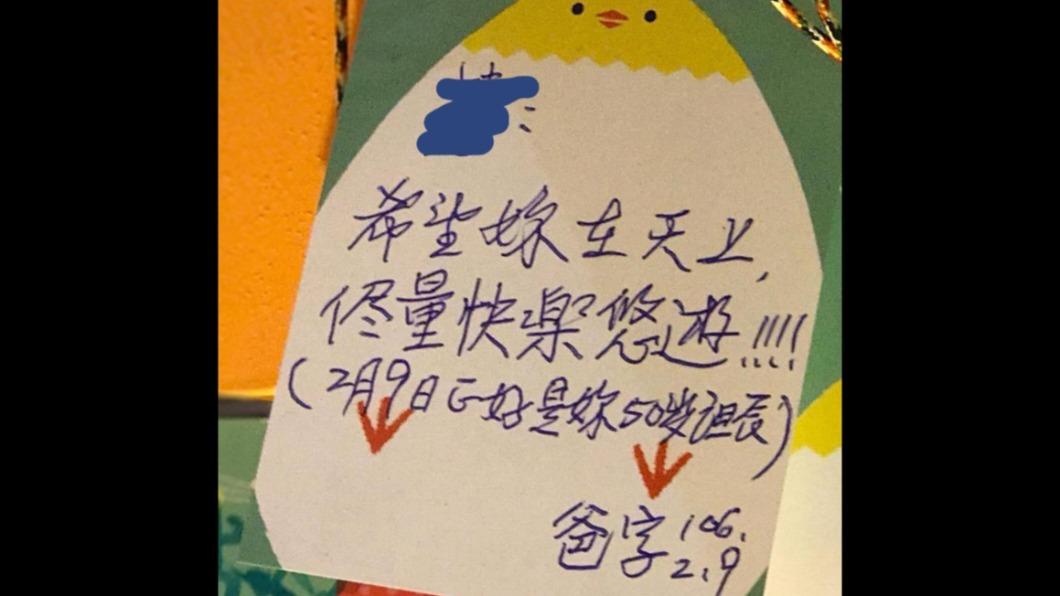 希望妳在天上,
侭量快楽悠遊!!!!
(2月9日正好是妳50岁诞辰)
爸字 106.
2.9